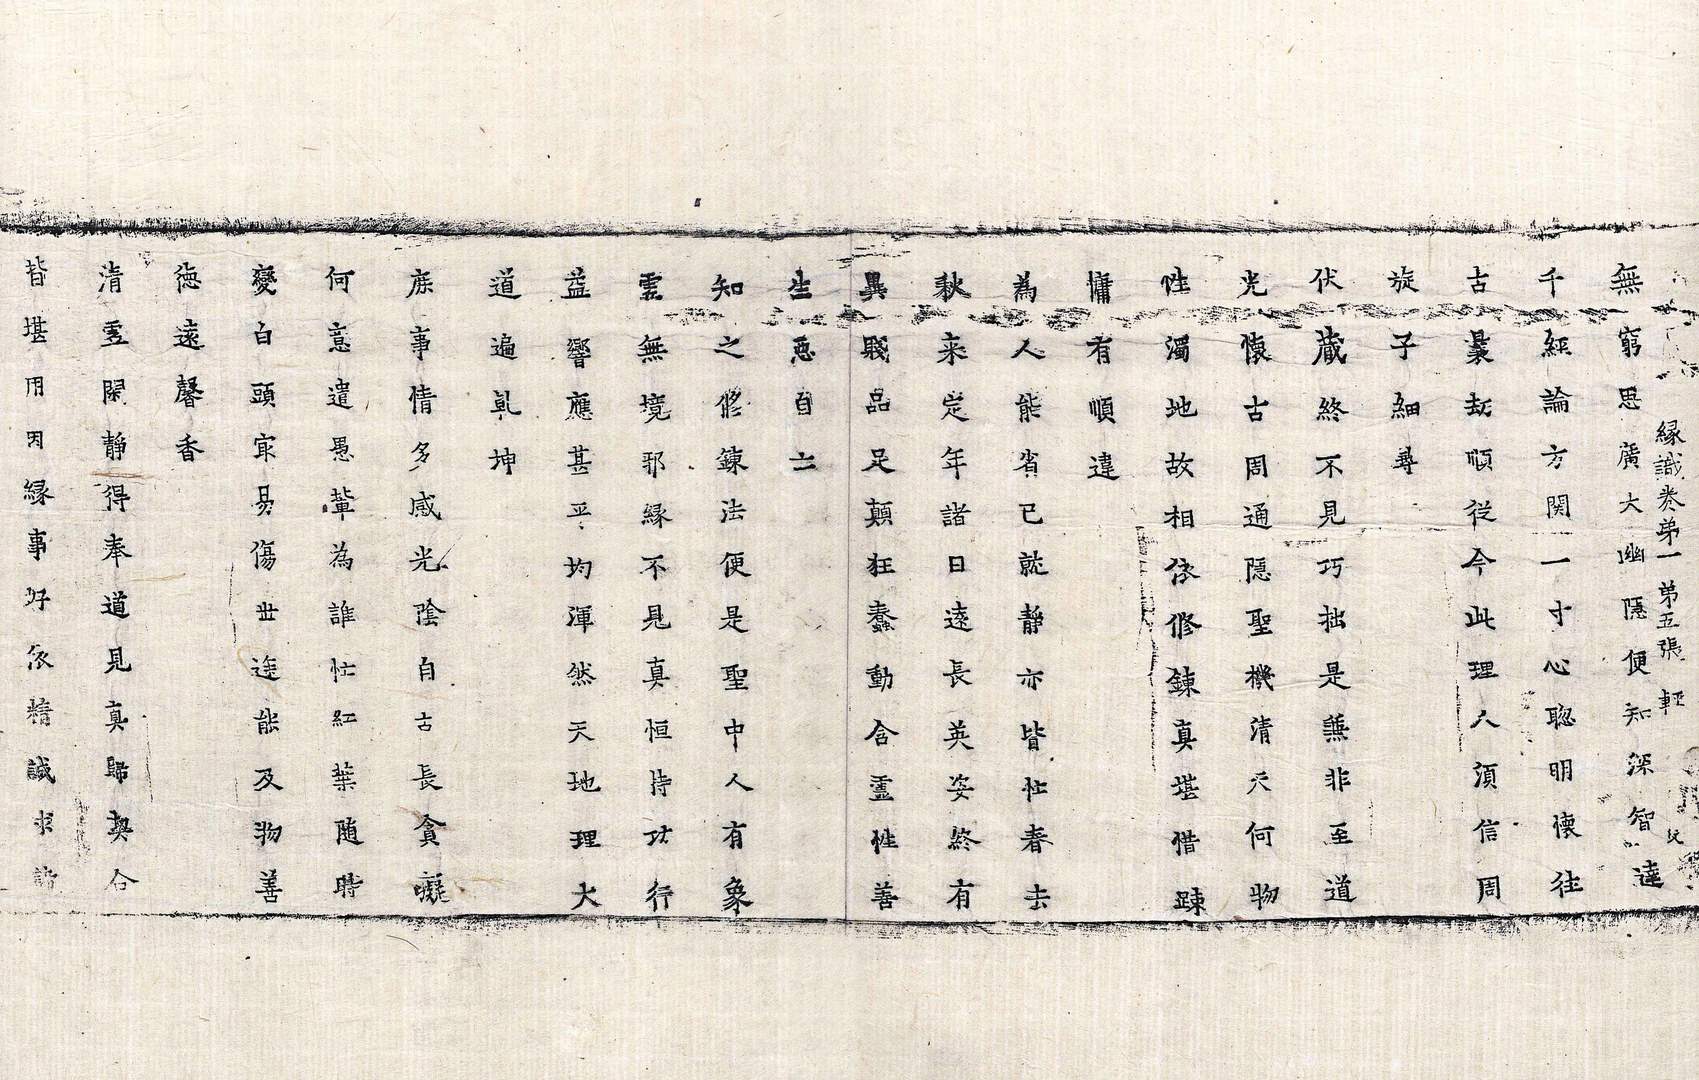 無窮思廣大幽隱便知深智達
緣識卷第一 第五張 輕
千經論方関一寸心聦明懷往
古曩劫順從今此理人湏信周
旋子細尋
伏藏終不見巧拙是無非至道
光懷古周通隱聖機清天何物
性濁地故相依修鍊真堪惜踈
慵有順違
為人能省已就靜亦皆性春去
秋来定年諸日遠長英姿終有
異賤品足顛狂蠢動含靈性善
生惡自亡
知之修鍊法便是聖中人有象
雲無境邪緣不見真恒持功行
益響應甚平均渾然天地理大
道遍乹坤
庶事情多感光隂自古長貪癡
何意遣愚輩為誰忙紅葉随時
變白頭㝡易傷丗途能及物善
德遠馨香
清虛閑靜得奉道見真歸契合
皆堪用因緣事好依精誠求諸